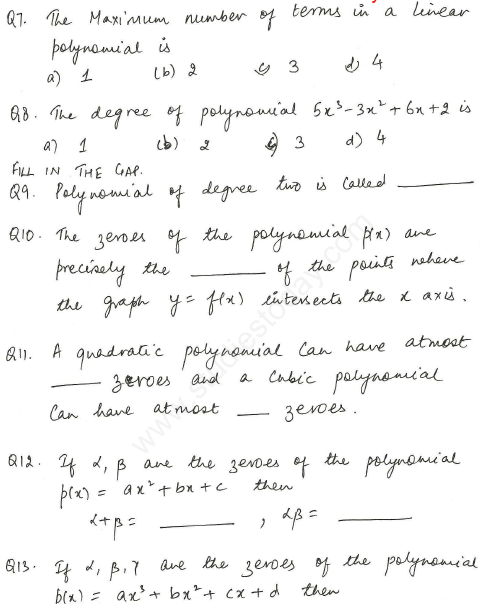 Q7. The Maximum number of terms in a linear
polynomial is
a) 1 (b) 2 c) 3 d) 4
Q8. The degree of polynomial 5x³-3x²+6x+2 is
a) 1 (b) 2 c) 3 d) 4
FILL IN THE GAP.
Q9. Polynomial of degree two is called ______
Q10. The zeroes of the polynomial p(x) are
precisely the ______ of the points where
the graph y = f(x) intersects the x axis.
Q11. A quadratic polynomial can have atmost
____ zeroes and a cubic polynomial
can have atmost ___ zeroes.
Q12. If α, β are the zeroes of the polynomial
p(x) = ax² + bx + c then
α+β = ______ , αβ = ______
Q13. If α, β, γ are the zeroes of the polynomial
p(x) = ax³ + bx² + cx + d then
www.studiestoday.com